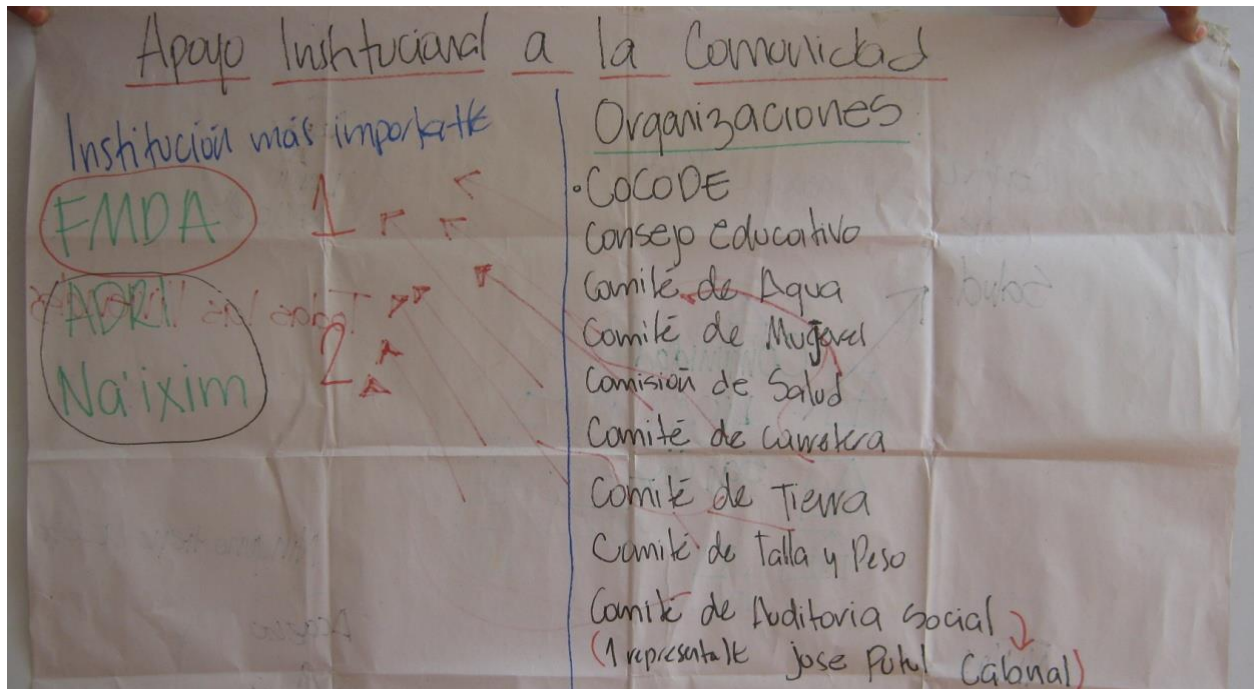 Apoyo Institucional a la Comunidad
Institución más importatte
FMDA 1
ADRI
Na'ixim 2
Organizaciones
• COCODE
Consejo educativo
Comité de Agua
Comité de Mugerel
Comisión de Salud
Comité de Carretera
Comité de Tierra
Comité de Talla y Peso
Comité de Auditoria Social
(1 representate jose Putul Cabnal)